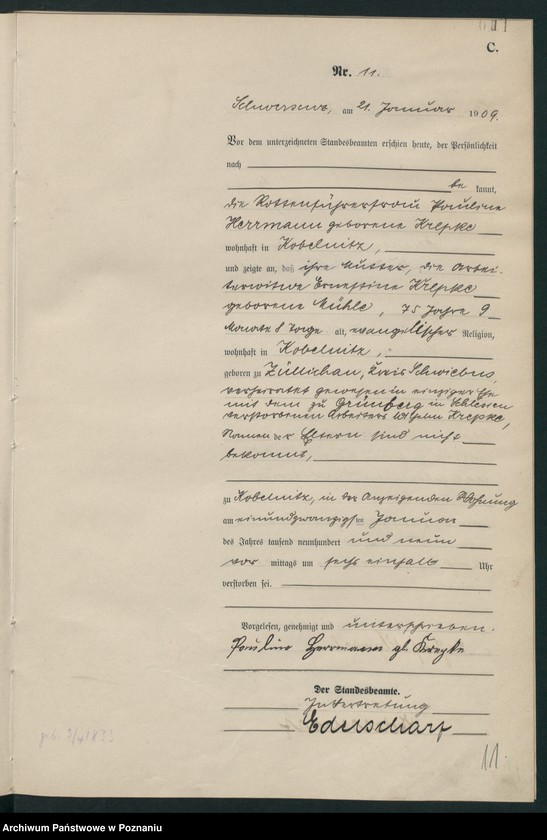 C.
Nr. 11.
Schwersenz, am 21. Januar 1909.
Vor dem unterzeichneten Standesbeamten erschien heute, der Persönlichkeit
nach
be kannt,
die Rottenführerfrau Pauline
Herrmann geborene Krepke
wohnhaft in Kobelnitz,
und zeigte an, daß ihre Mutter, die Arbei-
terwitwe Ernestine Krepke
geborene Mühle, 75 Jahre 9
Monate 8 Tage alt, evangelischer Religion,
wohnhaft in Kobelnitz,
geboren zu Züllichau, Kreis Schwiebus,
verheiratet gewesen in einziger Ehe
mit dem zu Grünberg in Schlesien
verstorbenen Arbeiters Wilhelm Krepke,
Namen der Eltern sind nicht
bekannt,
zu Kobelnitz, in der Anzeigenden Wohnung
am einundzwanzigsten Januar
des Jahres tausend neunhundert und neun
vor mittags um sechs einhalb Uhr
verstorben sei.
Vorgelesen, genehmigt und unterschrieben.
Pauline Herrmann gb. Krepke
Der Standesbeamte.
In Vertretung
Ederscharf
geb. 3/4 1833
11.
Archiwum Państwowe w Poznaniu